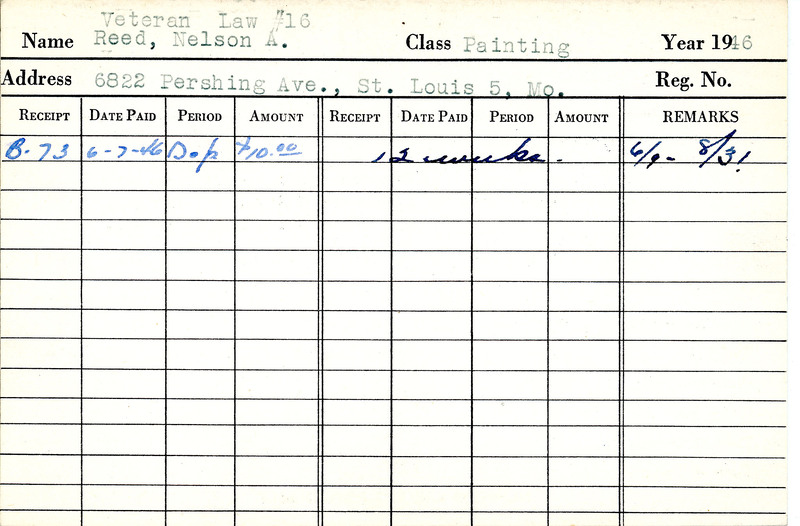 Veteran Law #16
Name Reed, Nelson A. Class Painting Year 1946
Address 6822 Pershing Ave., St. Louis 5, Mo. Reg. No.
RECEIPT DATE PAID PERIOD AMOUNT RECEIPT DATE PAID PERIOD AMOUNT REMARKS
B-73 6-7-46 Dep $10.00 12 weeks. 6/9- 8/31